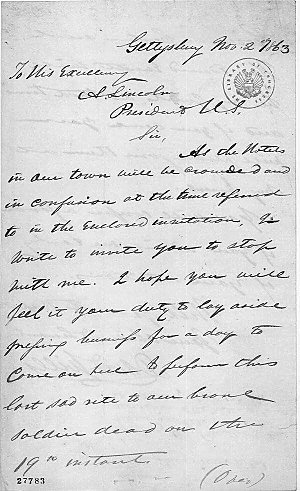 Gettysburg Nov. 2 1863
To His Excellency
A Lincoln
President U.S.
Sir,
As the Hotels
in our town will be crowded and
in confusion at the time referred
to in the enclosed invitation, I
write to invite you to stop
with me. I hope you will
feel it your duty to lay aside
pressing business for a day to
come on here to perform this
last sad rite to our brave
soldier dead on the
19th instant.
(Over)
27783
THE LIBRARY OF CONGRESS